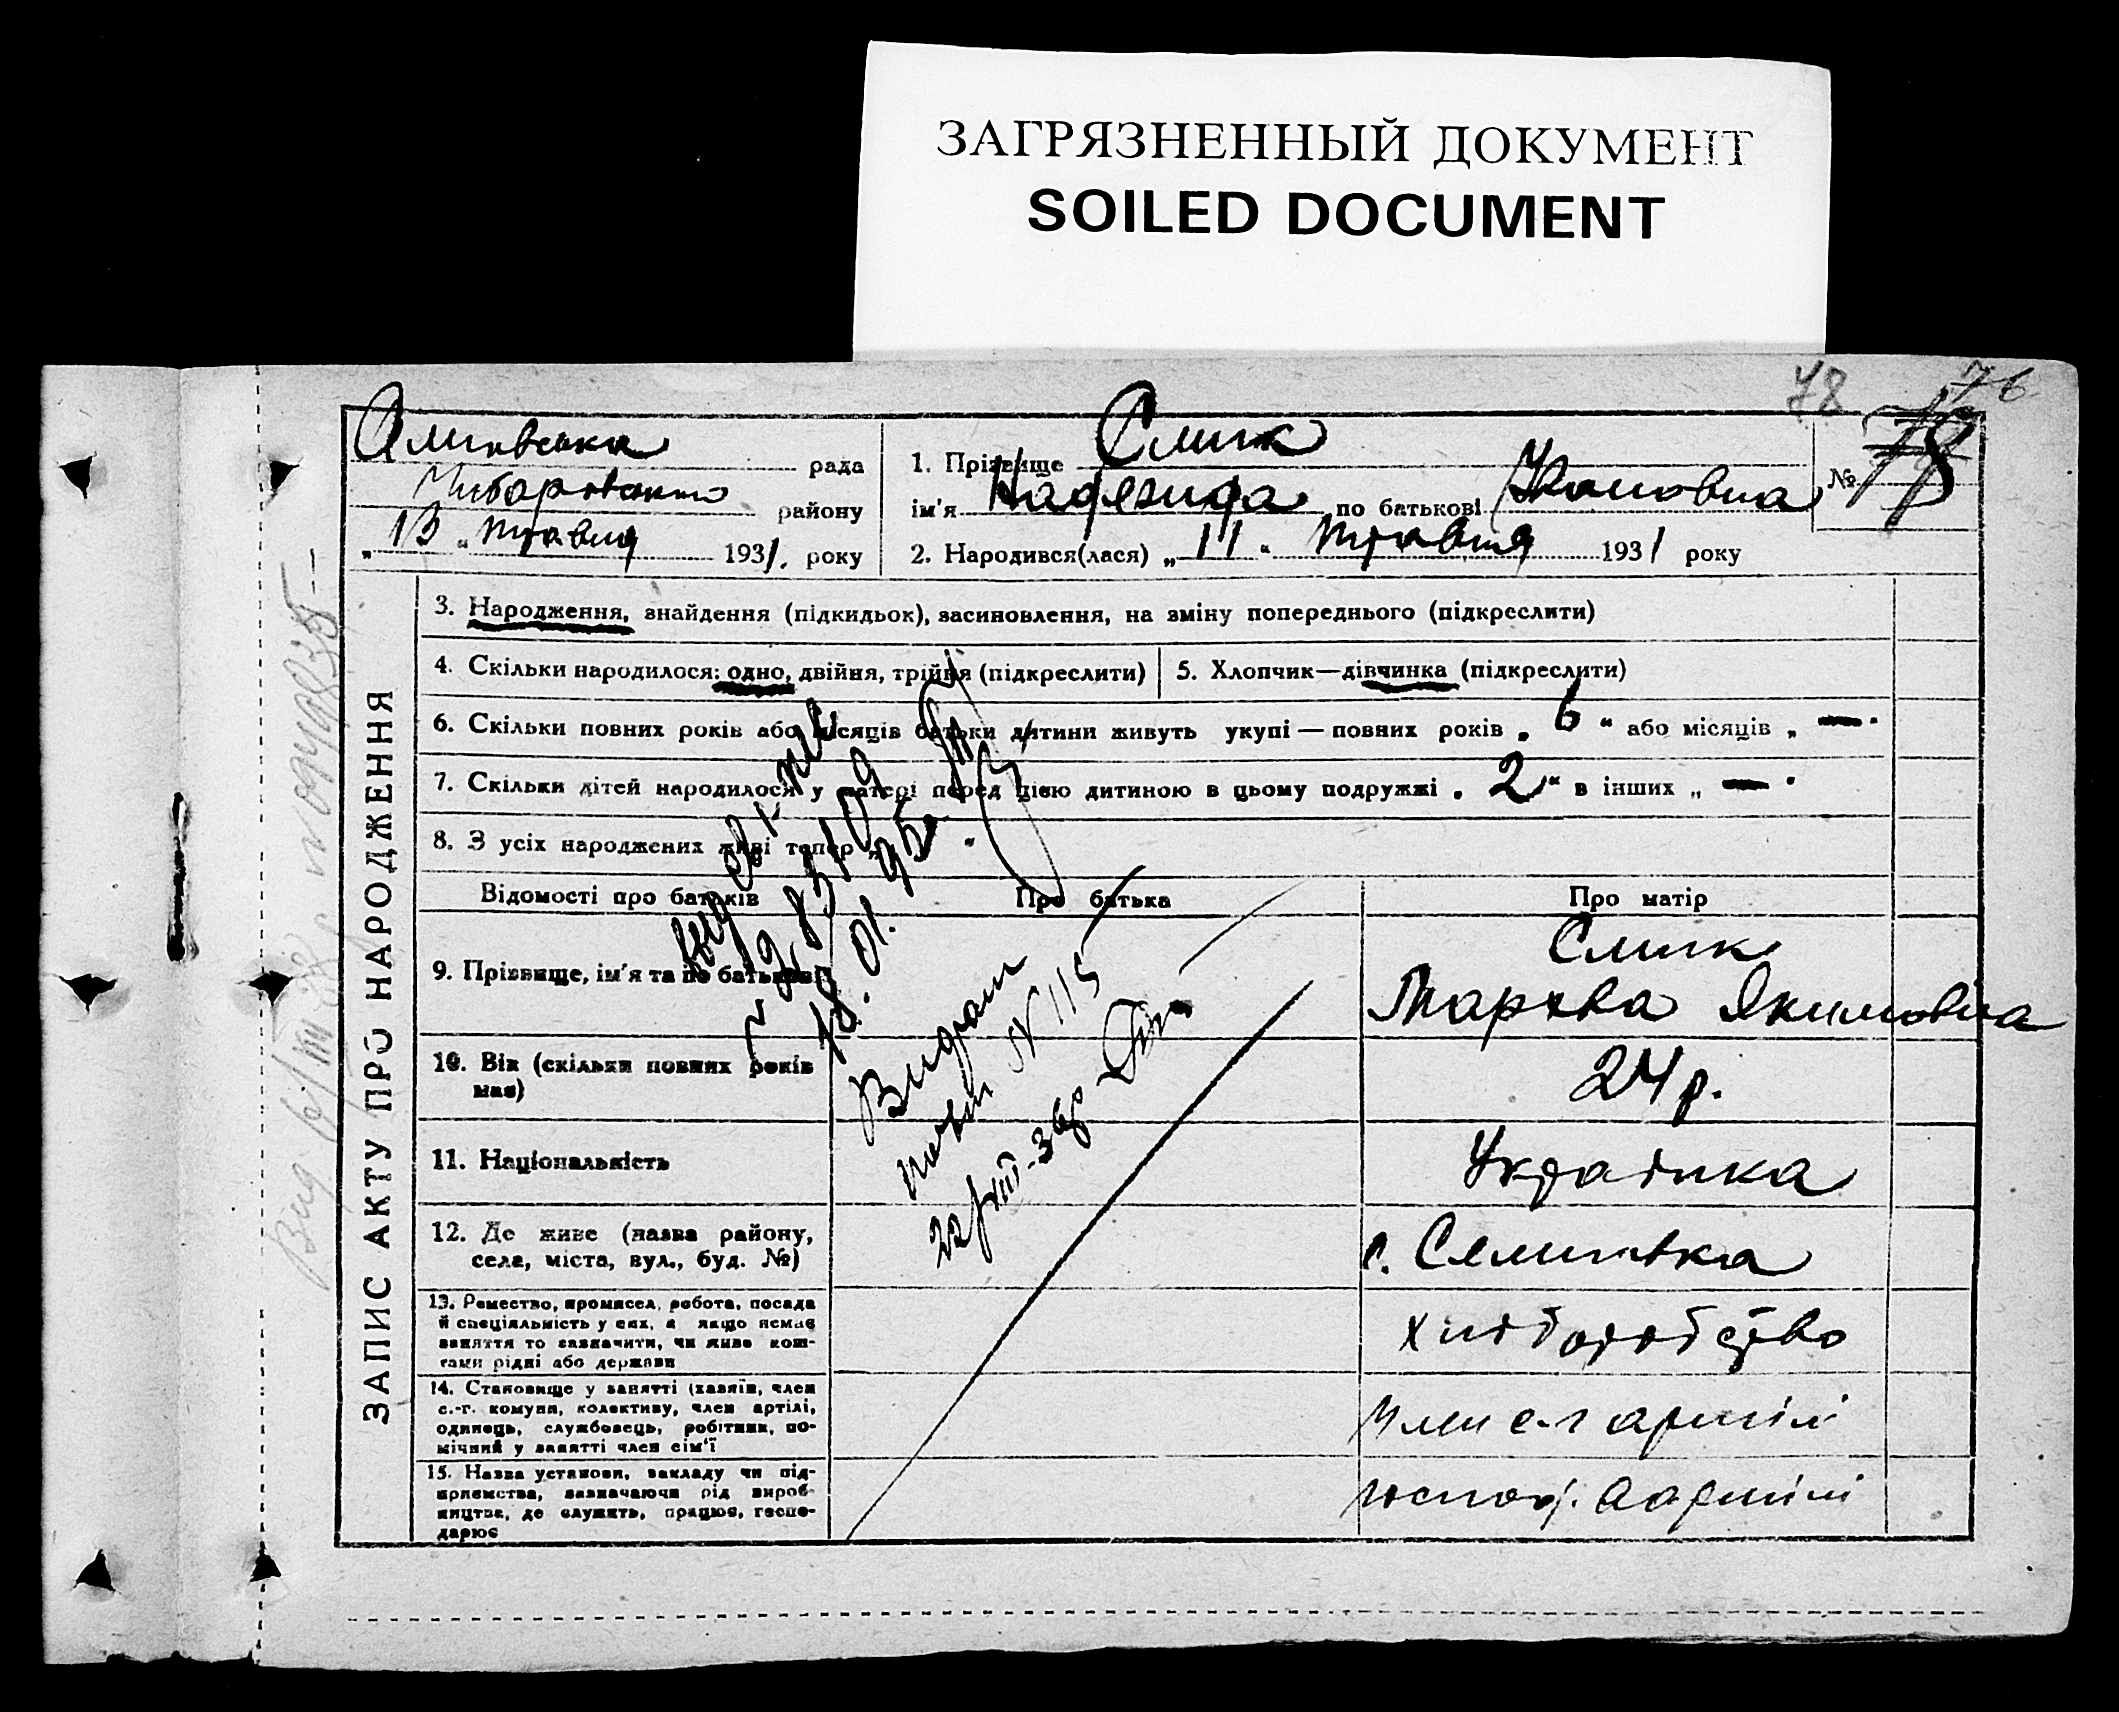 ЗАГРЯЗНЕННЫЙ ДОКУМЕНТ
SOILED DOCUMENT
78 76
рада
району
„13" травня 1931. року
1. Прізвище Слиж
ім'я Надежида по батькові
№ 78
2. Народився(лася) „11" травня 1931 року
ЗАПИС АКТУ ПРО НАРОДЖЕННЯ
3. Народження, знайдення (підкидьок), засиновлення, на зміну попереднього (підкреслити)
4. Скільки народилося: одно, двійня, трійня (підкреслити)
5. Хлопчик—дівчинка (підкреслити)
6. Скільки повних років або місяців батьки дитини живуть укупі — повних років „6" або місяців „—"
7. Скільки дітей народилося у матері перед цією дитиною в цьому подружжі „2" в інших „—"
8. З усіх народжених живі тепер „ "
Відомості про батьків Про батька Про матір
9. Прізвище, ім'я та по батькові
Слиж
Якимовна
10. Вік (скільки повних років
має)
24 р.
11. Національність
Українка
12. Де живе (назва району,
села, міста, вул., буд. №)
с.
13. Ремество, промисел, робота, посада
й спеціяльність у них, а якщо немає
заняття то зазначити, чи живе кош-
тами рідні або держави
хліборобство
14. Становище у занятті (хазяїн, член
с.-г. комуни, колективу, член артілі,
одинець, службовець, робітник, по-
мічний у занятті член сім'ї
Член с-г артілі
15. Назва установи, закладу чи під-
приємства, зазначаючи рід вироб-
ництва, де служить, працює, госпо-
дарює
Видан
N 115